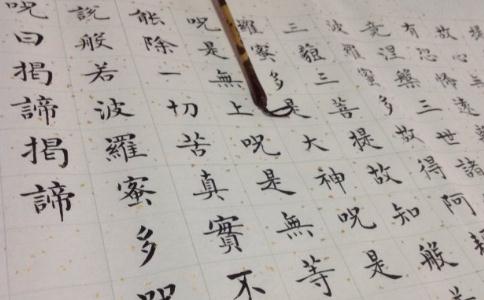 故心無
有恐怖遠
竟涅槃三世諸
波羅蜜多故得阿
三藐三菩提故知般
羅蜜多是大神呪是
呪是無上呪是無等
能除一切苦真實不
說般若波羅蜜多呪
呪曰揭諦揭諦